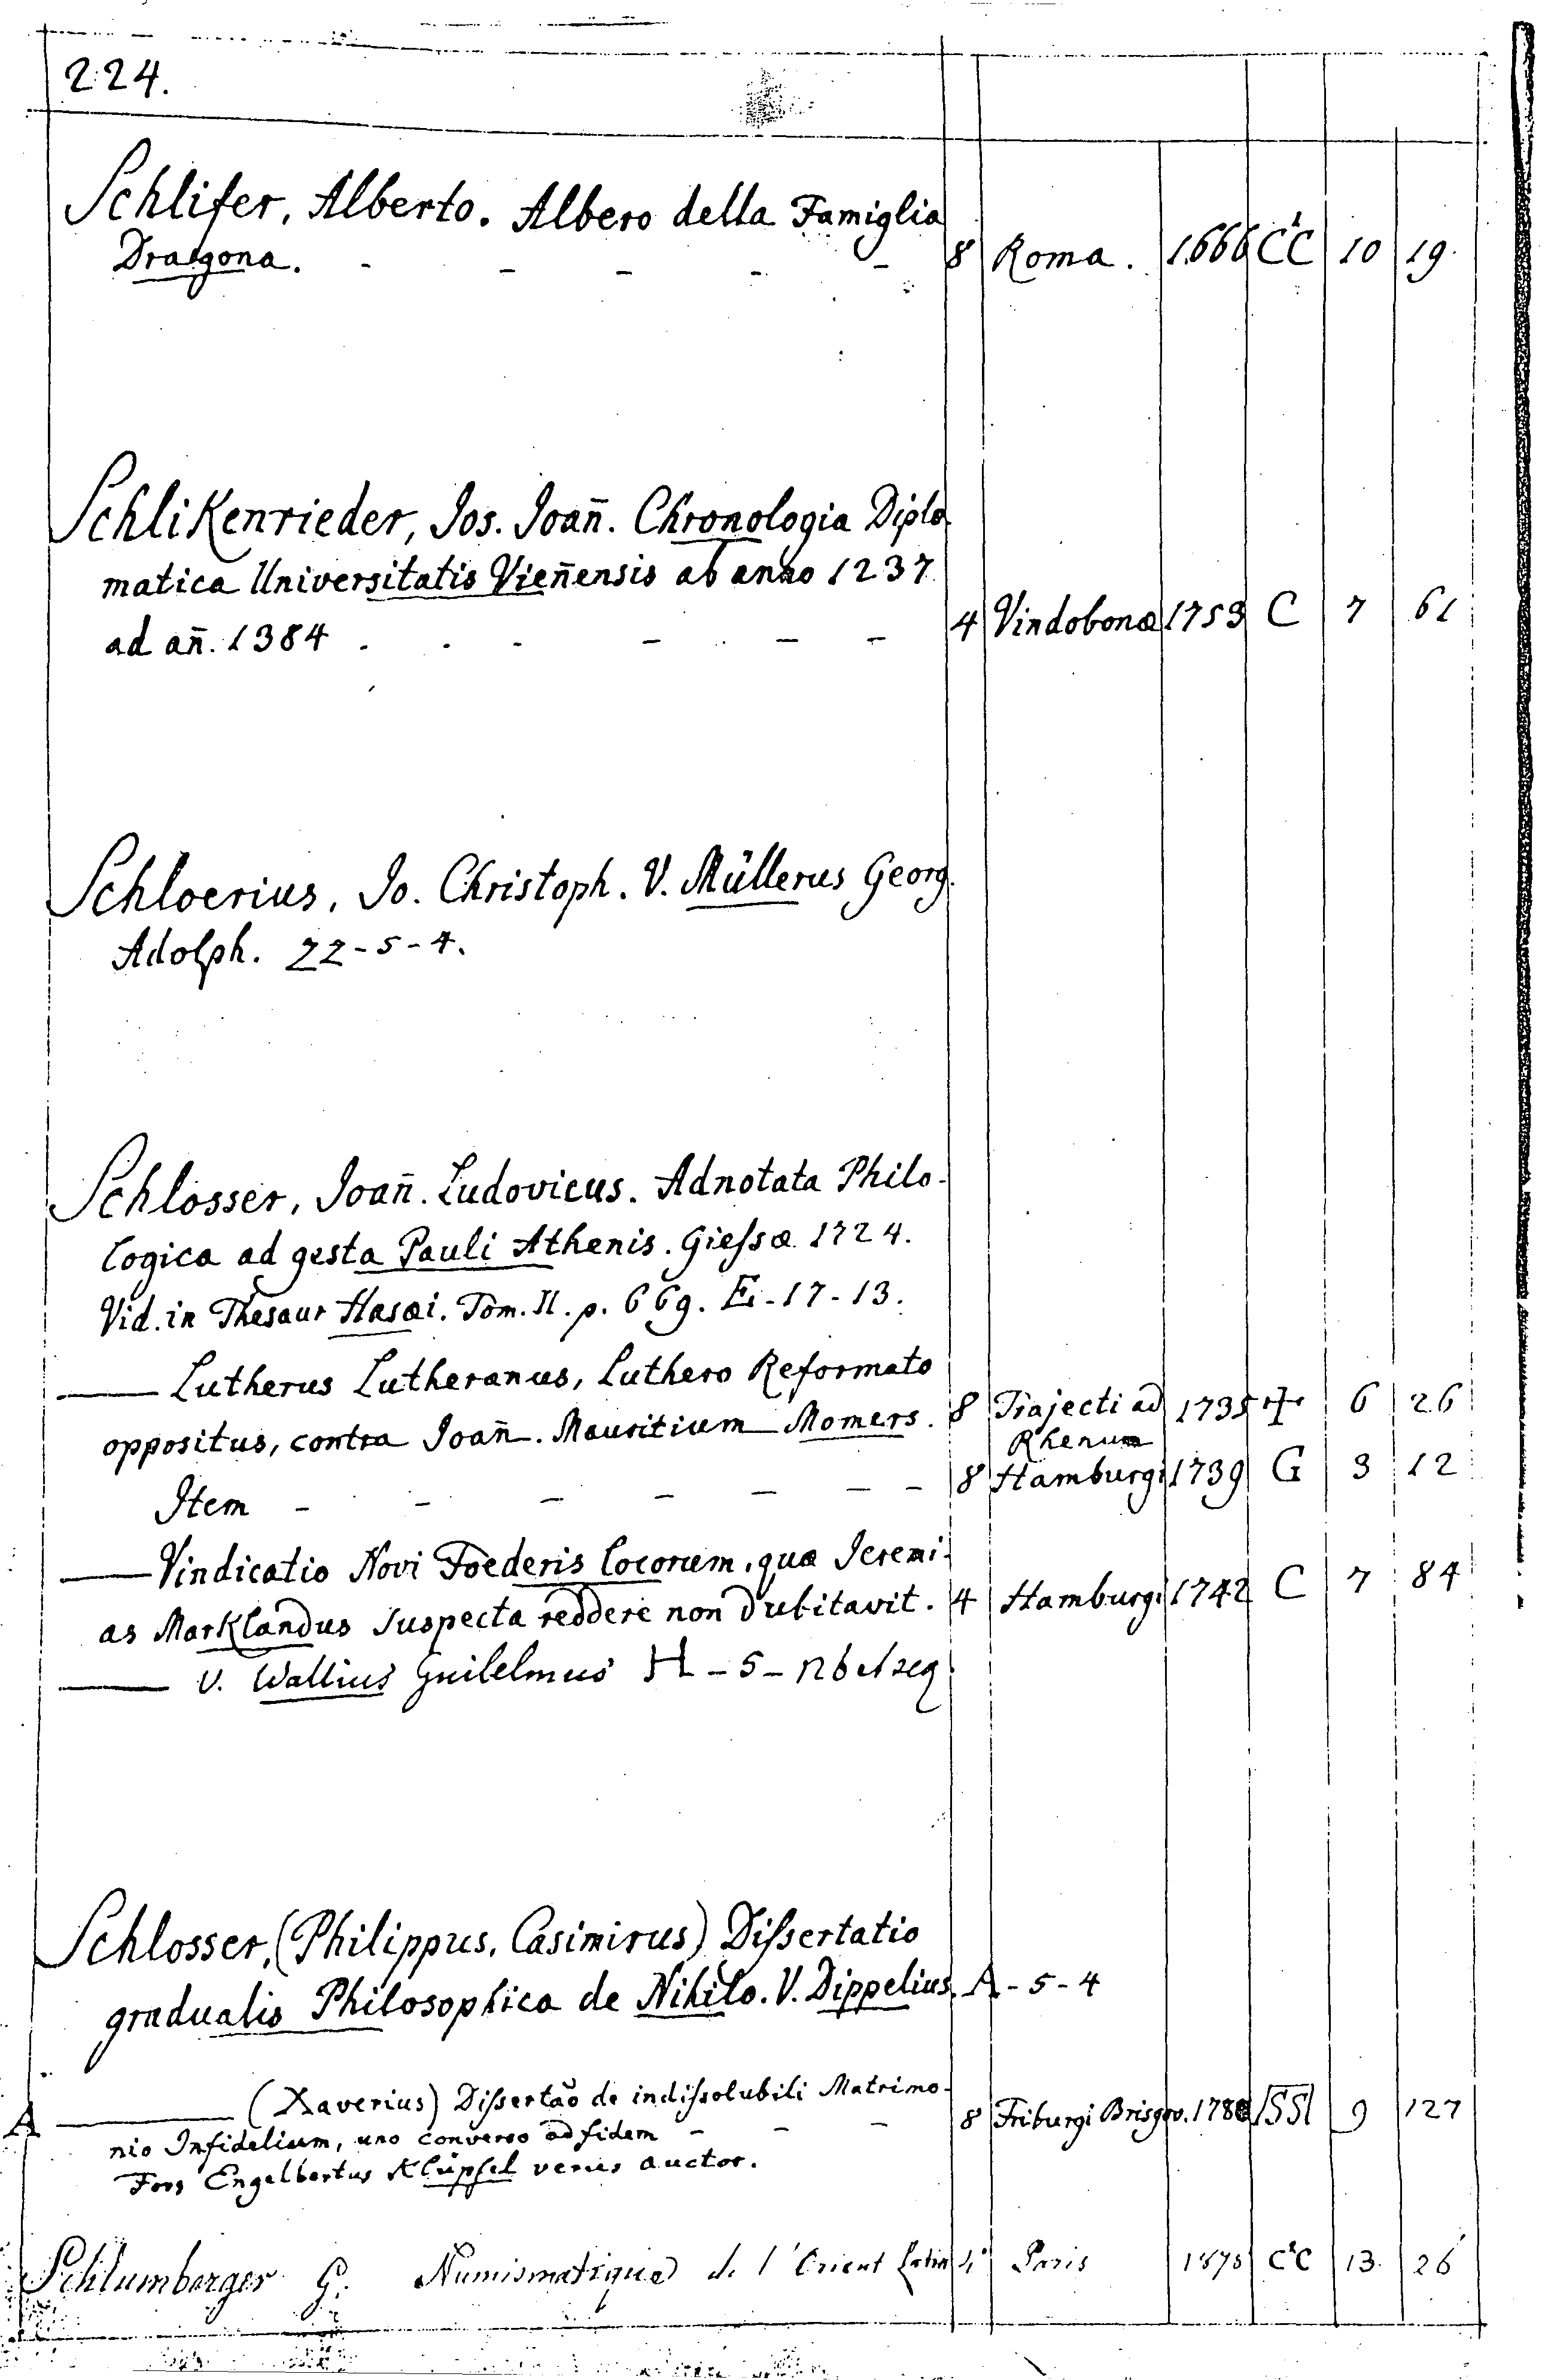 224.
Schlifer, Alberto. Albero della Famiglia
Dragona. - - - - - 8 Roma. 1666 C'C 10 19.
Schlikenrieder, Jos. Joan̄. Chronologia Diplo
matica Universitatis Vien̄ensis ab anno 1237
ad an̄. 1384 . . - - - - 4 Vindobonæ 1753 C 7 61
Schloerius, Jo. Christoph. V. Müllerus Georg.
Adolph. 22-5-4.
Schlosser, Joan̄. Ludovicus. Adnotata Philo-
logica ad gesta Pauli Athenis. Giessæ 1724.
Vid. in Thesaur Hasæi. Tom. II. p. 669. E-17-13.
— Lutherus Lutheranus, Luthero Reformato
oppositus, contra Joan̄. Mauritium Momers. 8 Trajecti ad Rhenum 1735 ✢ 6 26
Item - - - - - - - 8 Hamburgi 1739 G 3 12
— Vindicatio Novi Foederis locorum, quæ Jeremi-
as Marklandus suspecta reddere non dubitavit. 4 Hamburgi 1742 C 7 84
— V. Wallius Guilelmus H-5-126 et seq
Schlosser, (Philippus, Casimirus) Dissertatio
gradualis Philosophica de Nihilo. V. Dippelius. A-5-4
A — (Xaverius) Dissertao de indissolubili Matrimo-
nio Infidelium, uno converso ad fidem - - - 8 Friburgi Brisgov. 1780 SS 9 127
Fors Engelbertus Klüpfel verus auctor.
Schlumberger G. Numismatique de l'Orient Latin 4° Paris 1878 C²C 13. 26